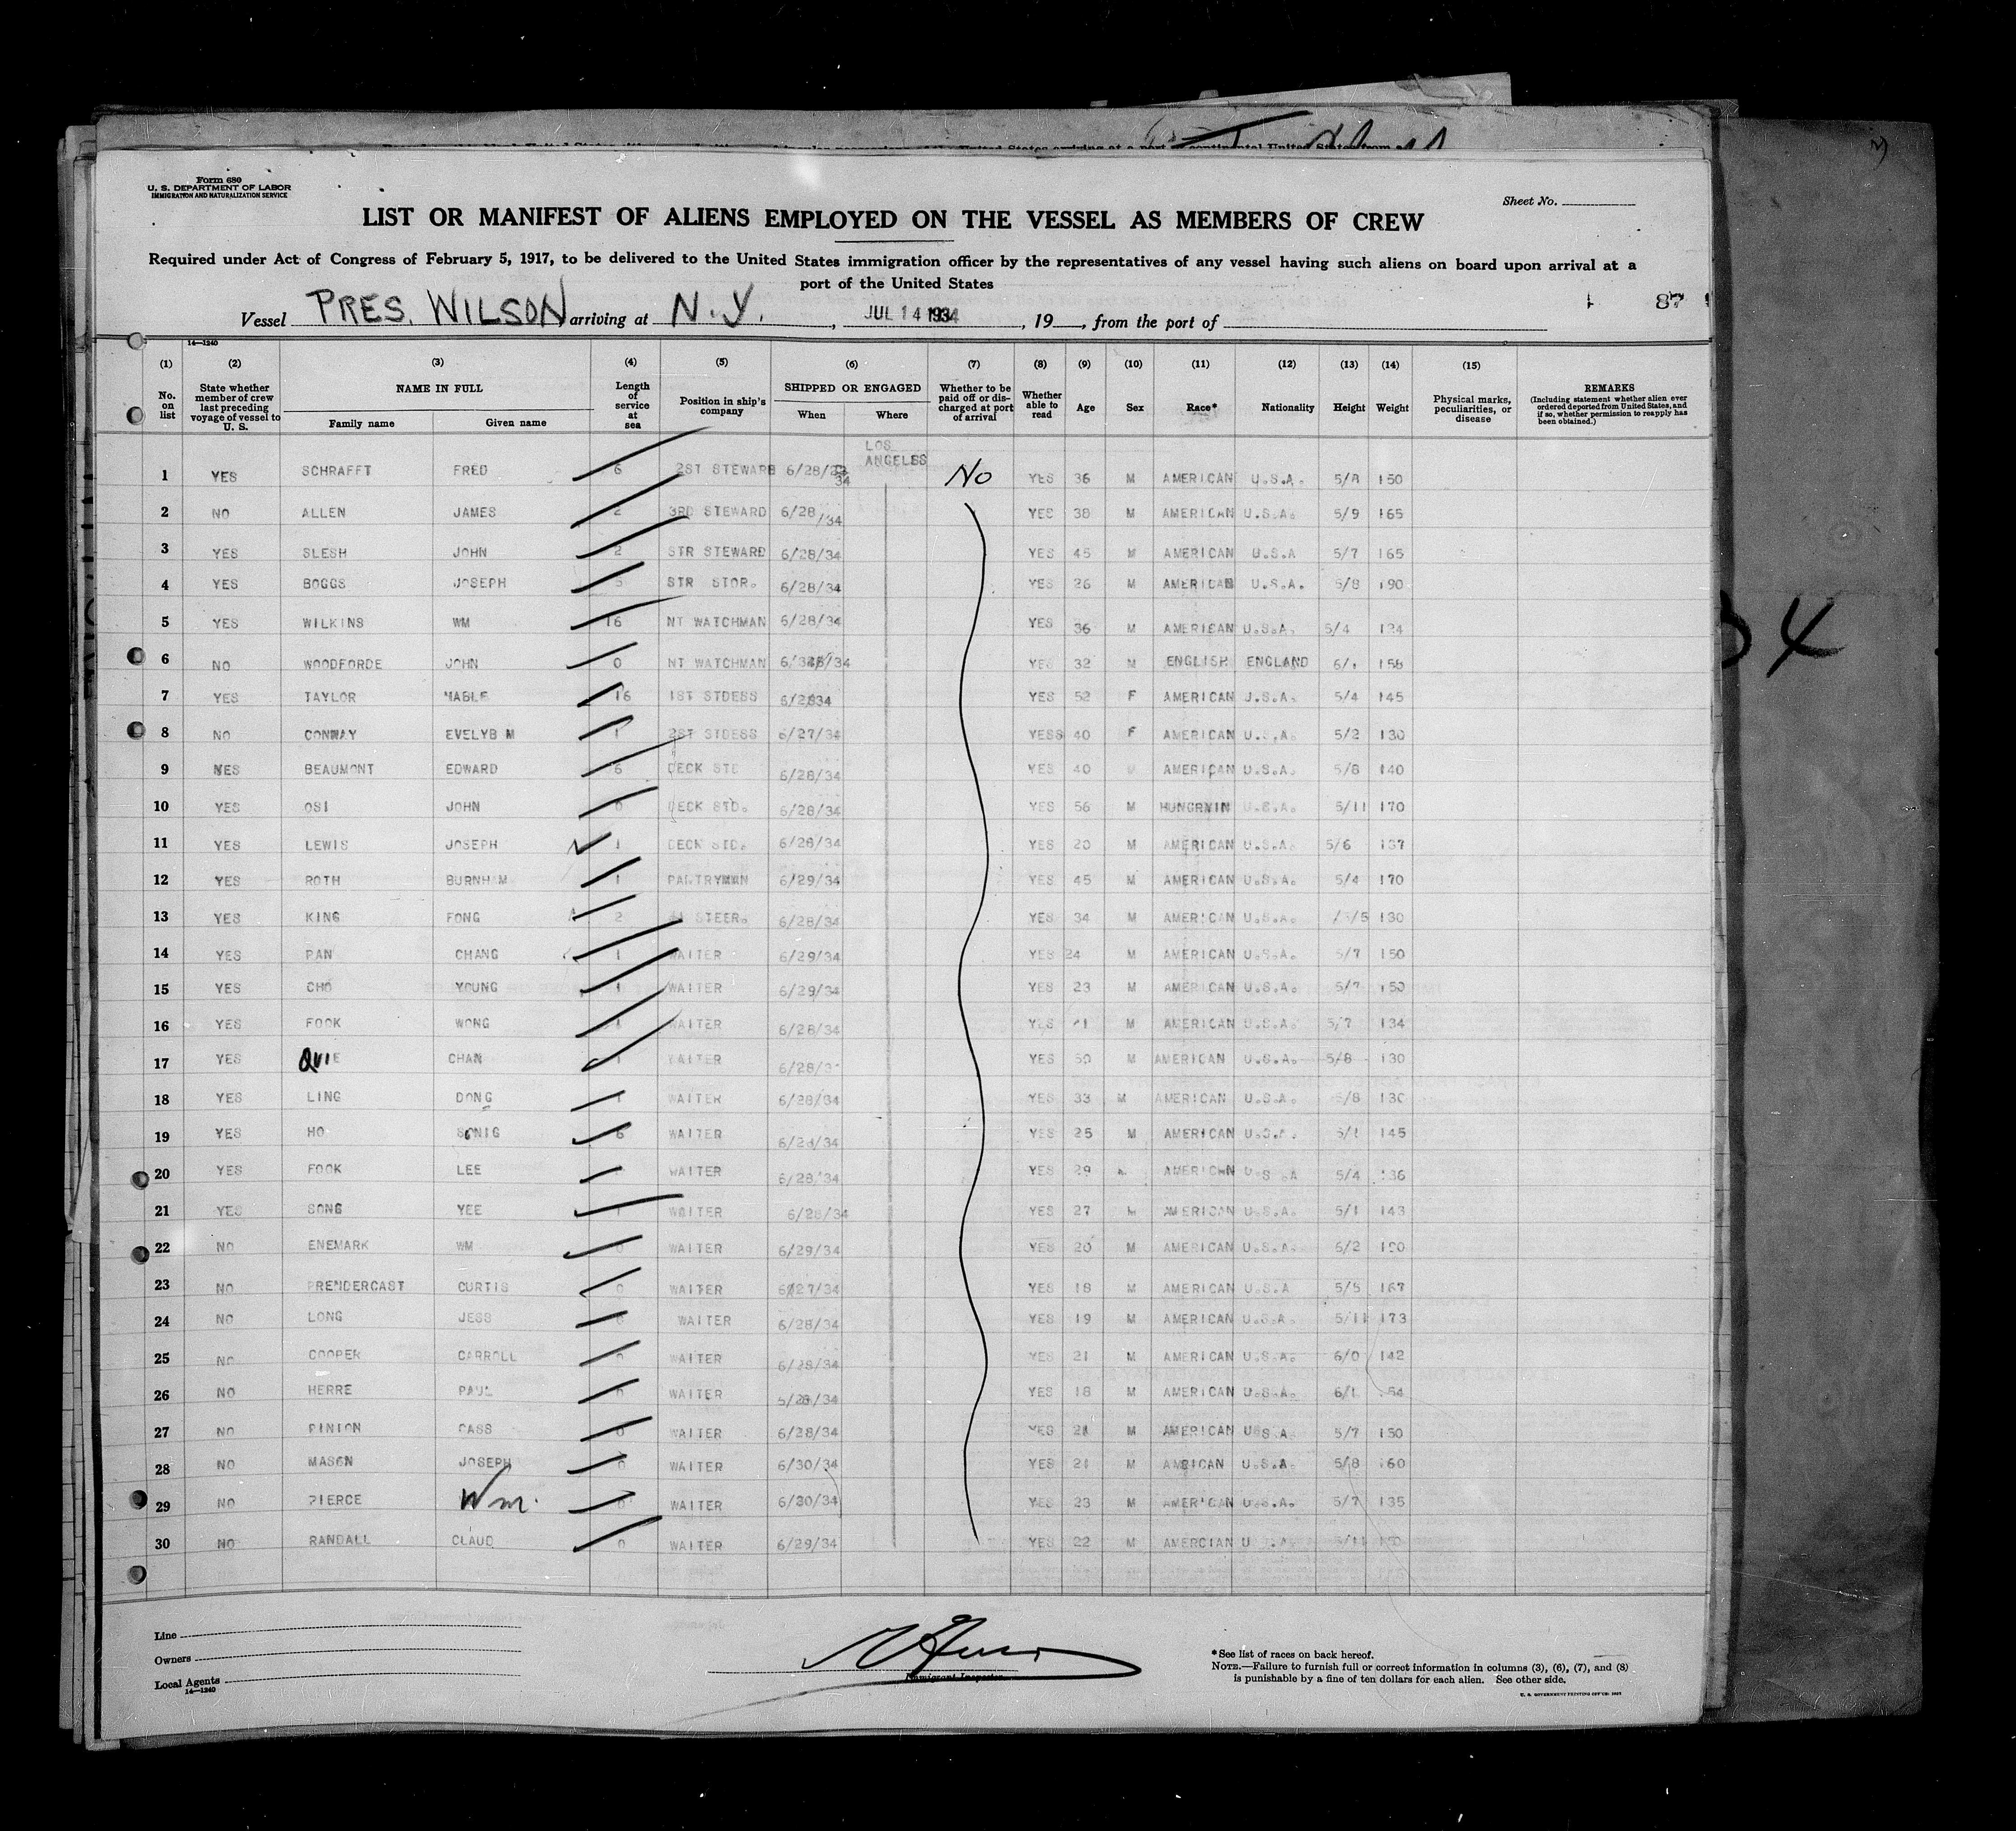 Form 680
U. S. DEPARTMENT OF LABOR
IMMIGRATION AND NATURALIZATION SERVICE
Sheet No.
LIST OR MANIFEST OF ALIENS EMPLOYED ON THE VESSEL AS MEMBERS OF CREW
Required under Act of Congress of February 5, 1917, to be delivered to the United States immigration officer by the representatives of any vessel having such aliens on board upon arrival at a
port of the United States
87
Vessel PRES. WILSON arriving at N.Y. , JUL 14 1934 , 19 , from the port of
14—1240
(1) (2) (3) (4) (5) (6) (7) (8) (9) (10) (11) (12) (13) (14) (15)
No. on list State whether member of crew last preceding voyage of vessel to U. S. NAME IN FULL Family name Given name Length of service at sea Position in ship's company SHIPPED OR ENGAGED When Where Whether to be paid off or discharged at port of arrival Whether able to read Age Sex Race* Nationality Height Weight Physical marks, peculiarities, or disease REMARKS (Including statement whether alien ever ordered deported from United States, and if so, whether permission to reapply has been obtained.)
LOS ANGELES
1 YES SCHRAFFT FRED 6 2ST STEWARD 6/28/34 No YES 36 M AMERICAN U.S.A. 5/8 150
2 NO ALLEN JAMES 2 3RD STEWARD 6/28/34 YES 38 M AMERICAN U.S.A. 5/9 165
3 YES SLESH JOHN 2 STR STEWARD 6/28/34 YES 45 M AMERICAN U.S.A 5/7 165
4 YES BOGGS JOSEPH STR STOR. 6/28/34 YES 26 M AMERICAN U.S.A. 5/8 190
5 YES WILKINS WM 16 NT WATCHMAN 6/28/34 YES 36 M AMERICAN U.S.A. 5/4 124
6 NO WOODFORDE JOHN 0 NT WATCHMAN YES 32 M ENGLISH ENGLAND 6/1 158
7 YES TAYLOR MABLE 16 1ST STDESS 6/2834 YES 52 F AMERICAN U.S.A. 5/4 145
8 NO CONWAY EVELYB M 1 2ST STDESS 6/27/34 YESS 40 F AMERICAN U.S.A. 5/2 130
9 YES BEAUMONT EDWARD 6 DECK STD 6/28/34 YES 40 AMERICAN U.S.A. 5/8 140
10 YES OSI JOHN 0 DECK STD. 6/28/34 YES 56 M U.S.A. 5/11 170
11 YES LEWIS JOSEPH 1 DECK STD. 6/28/34 YES 20 M AMERICAN U.S.A. 5/6 137
12 YES ROTH BURNHAM 1 PANTRYMAN 6/29/34 YES 45 M AMERICAN U.S.A. 5/4 170
13 YES KING FONG 2 STEER. 6/28/34 YES 34 M AMERICAN U.S.A. /5/5 130
14 YES PAN CHANG 1 WAITER 6/29/34 YES 24 M AMERICAN U.S.A. 5/7 150
15 YES CHO YOUNG 1 WAITER 6/29/34 YES 23 M AMERICAN U.S.A. 5/7 150
16 YES FOOK WONG 1 WAITER 6/28/34 YES M AMERICAN U.S.A. 5/7 134
17 YES QUIE CHAN 1 WAITER 6/28/3 YES 50 M AMERICAN U.S.A. 5/8 130
18 YES LING DONG 1 WAITER 6/28/34 YES 33 M AMERICAN U.S.A. 5/8 130
19 YES HO 6 WAITER 6/28/34 YES 25 M AMERICAN U.S.A. 5/1 145
20 YES FOOK LEE WAITER 6/28/34 YES 29 AMERICAN U.S.A 5/4 136
21 YES SONG YEE 1 WAITER 6/28/34 YES 27 M AMERICAN U.S.A. 5/1 143
22 NO ENEMARK WM 0 WAITER 6/29/34 YES 20 M AMERICAN U.S.A. 6/2
23 NO PRENDERCAST CURTIS 0 WAITER 6/27/34 YES 18 M AMERICAN U.S.A 5/5 167
24 NO LONG JESS WAITER 6/28/34 YES 19 M AMERICAN U.S.A. 5/11 173
25 NO COOPER CARROLL 0 WAITER 6/28/34 YES 21 M AMERICAN U.S.A. 6/0 142
26 NO HERRE PAUL 0 WAITER 5/28/34 YES 18 M AMERICAN U.S.A. 6/1
27 NO PINION CASS 0 WAITER 6/28/34 YES 21 M AMERICAN U.S.A 5/7 150
28 NO MASON JOSEPH 0 WAITER 6/30/34 YES 21 M U.S.A 5/8 160
29 NO PIERCE Wm. 0 WAITER 6/30/34 YES 23 M AMERICAN U.S.A. 5/7 135
30 NO RANDALL CLAUD 0 WAITER 6/29/34 YES 22 M AMERCIAN U.S.A 5/11
Line
Owners
Local Agents
14—1240
Immigrant Inspector
*See list of races on back hereof.
NOTE.—Failure to furnish full or correct information in columns (3), (6), (7), and (8)
is punishable by a fine of ten dollars for each alien. See other side.
U. S. GOVERNMENT PRINTING OFFICE: 1927
34